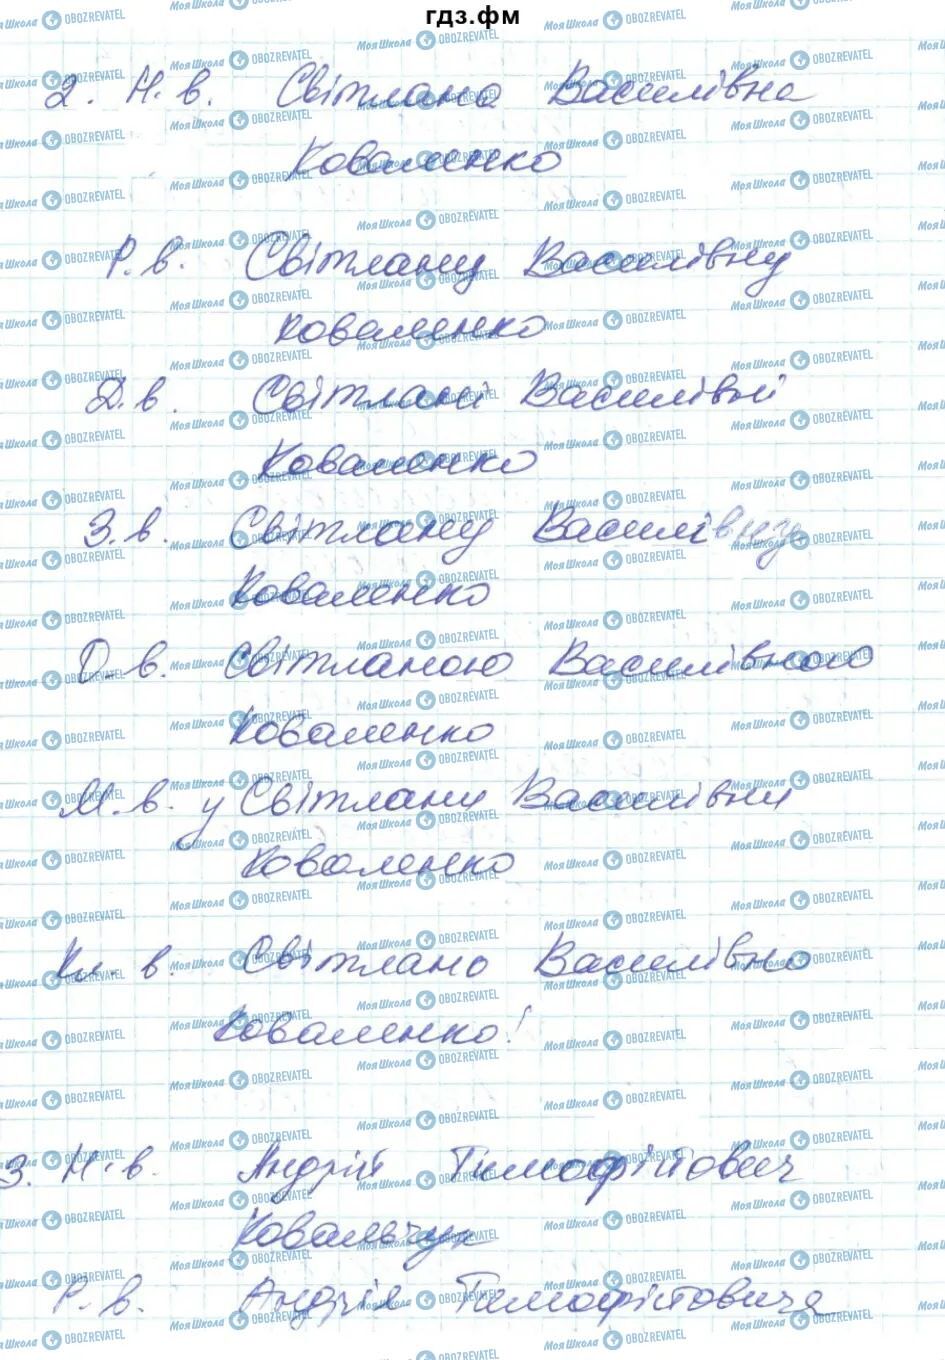 гдз.фм
2. Н.в. Світлана Василівна
Коваленко
Р.в. Світлану Василівну
Коваленко
Д.в. Світлані Василівні
Коваленко
З.в. Світлану Василівну
Коваленко
О.в. Світланою Василівною
Коваленко
М.в. у Світлани Василівни
Коваленко
Кл. в. Світлано Василівно
Коваленко!
3. Н.в. Андрій Тимофійович
Ковальчук
Р.в. Андрія Тимофійовича